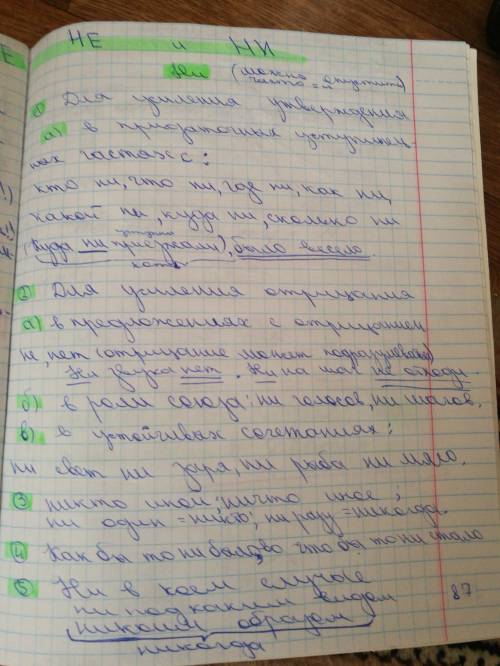 НЕ и НИ
Ни (можно часто = и опустить)
① Для усиления утверждения
а) в придаточных уступитель
ных частях с:
кто ни, что ни, где ни, как ни,
какой ни, куда ни, сколько ни
(Куда ни приезжали), было весело.
② Для усиления отрицания
а) в предложениях с отрицанием
не, нет (отрицание может подразумеваться)
Ни звука нет. Ни на шаг не отходи.
б) в роли союза: ни голосов, ни шагов.
в) в устойчивых сочетаниях:
ни свет ни заря, ни рыба ни мясо.
③ никто иной; ничто иное;
ни один = никто; ни разу = никогда.
④ Как бы то ни было, что бы то ни стало
⑤ Ни в коем случае
ни под каким видом
никоим образом
никогда
87